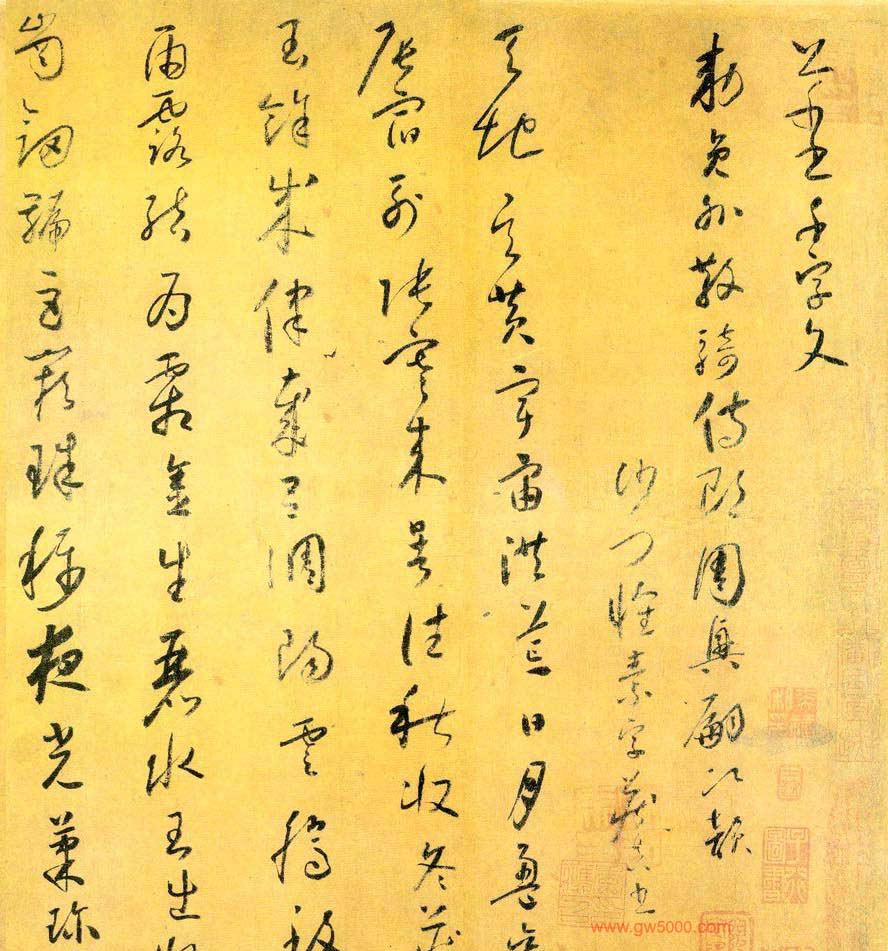 草書千字文
敕員外散騎侍郎周興嗣次韻
沙門懷素字藏真書
天地玄黃宇宙洪荒日月盈昃
辰宿列張寒來暑往秋收冬藏
閏餘成律歲呂調陽雲騰致
雨露結為霜金生麗水玉出崑
崗劍號巨闕珠稱夜光菓珍
www.gw5000.com